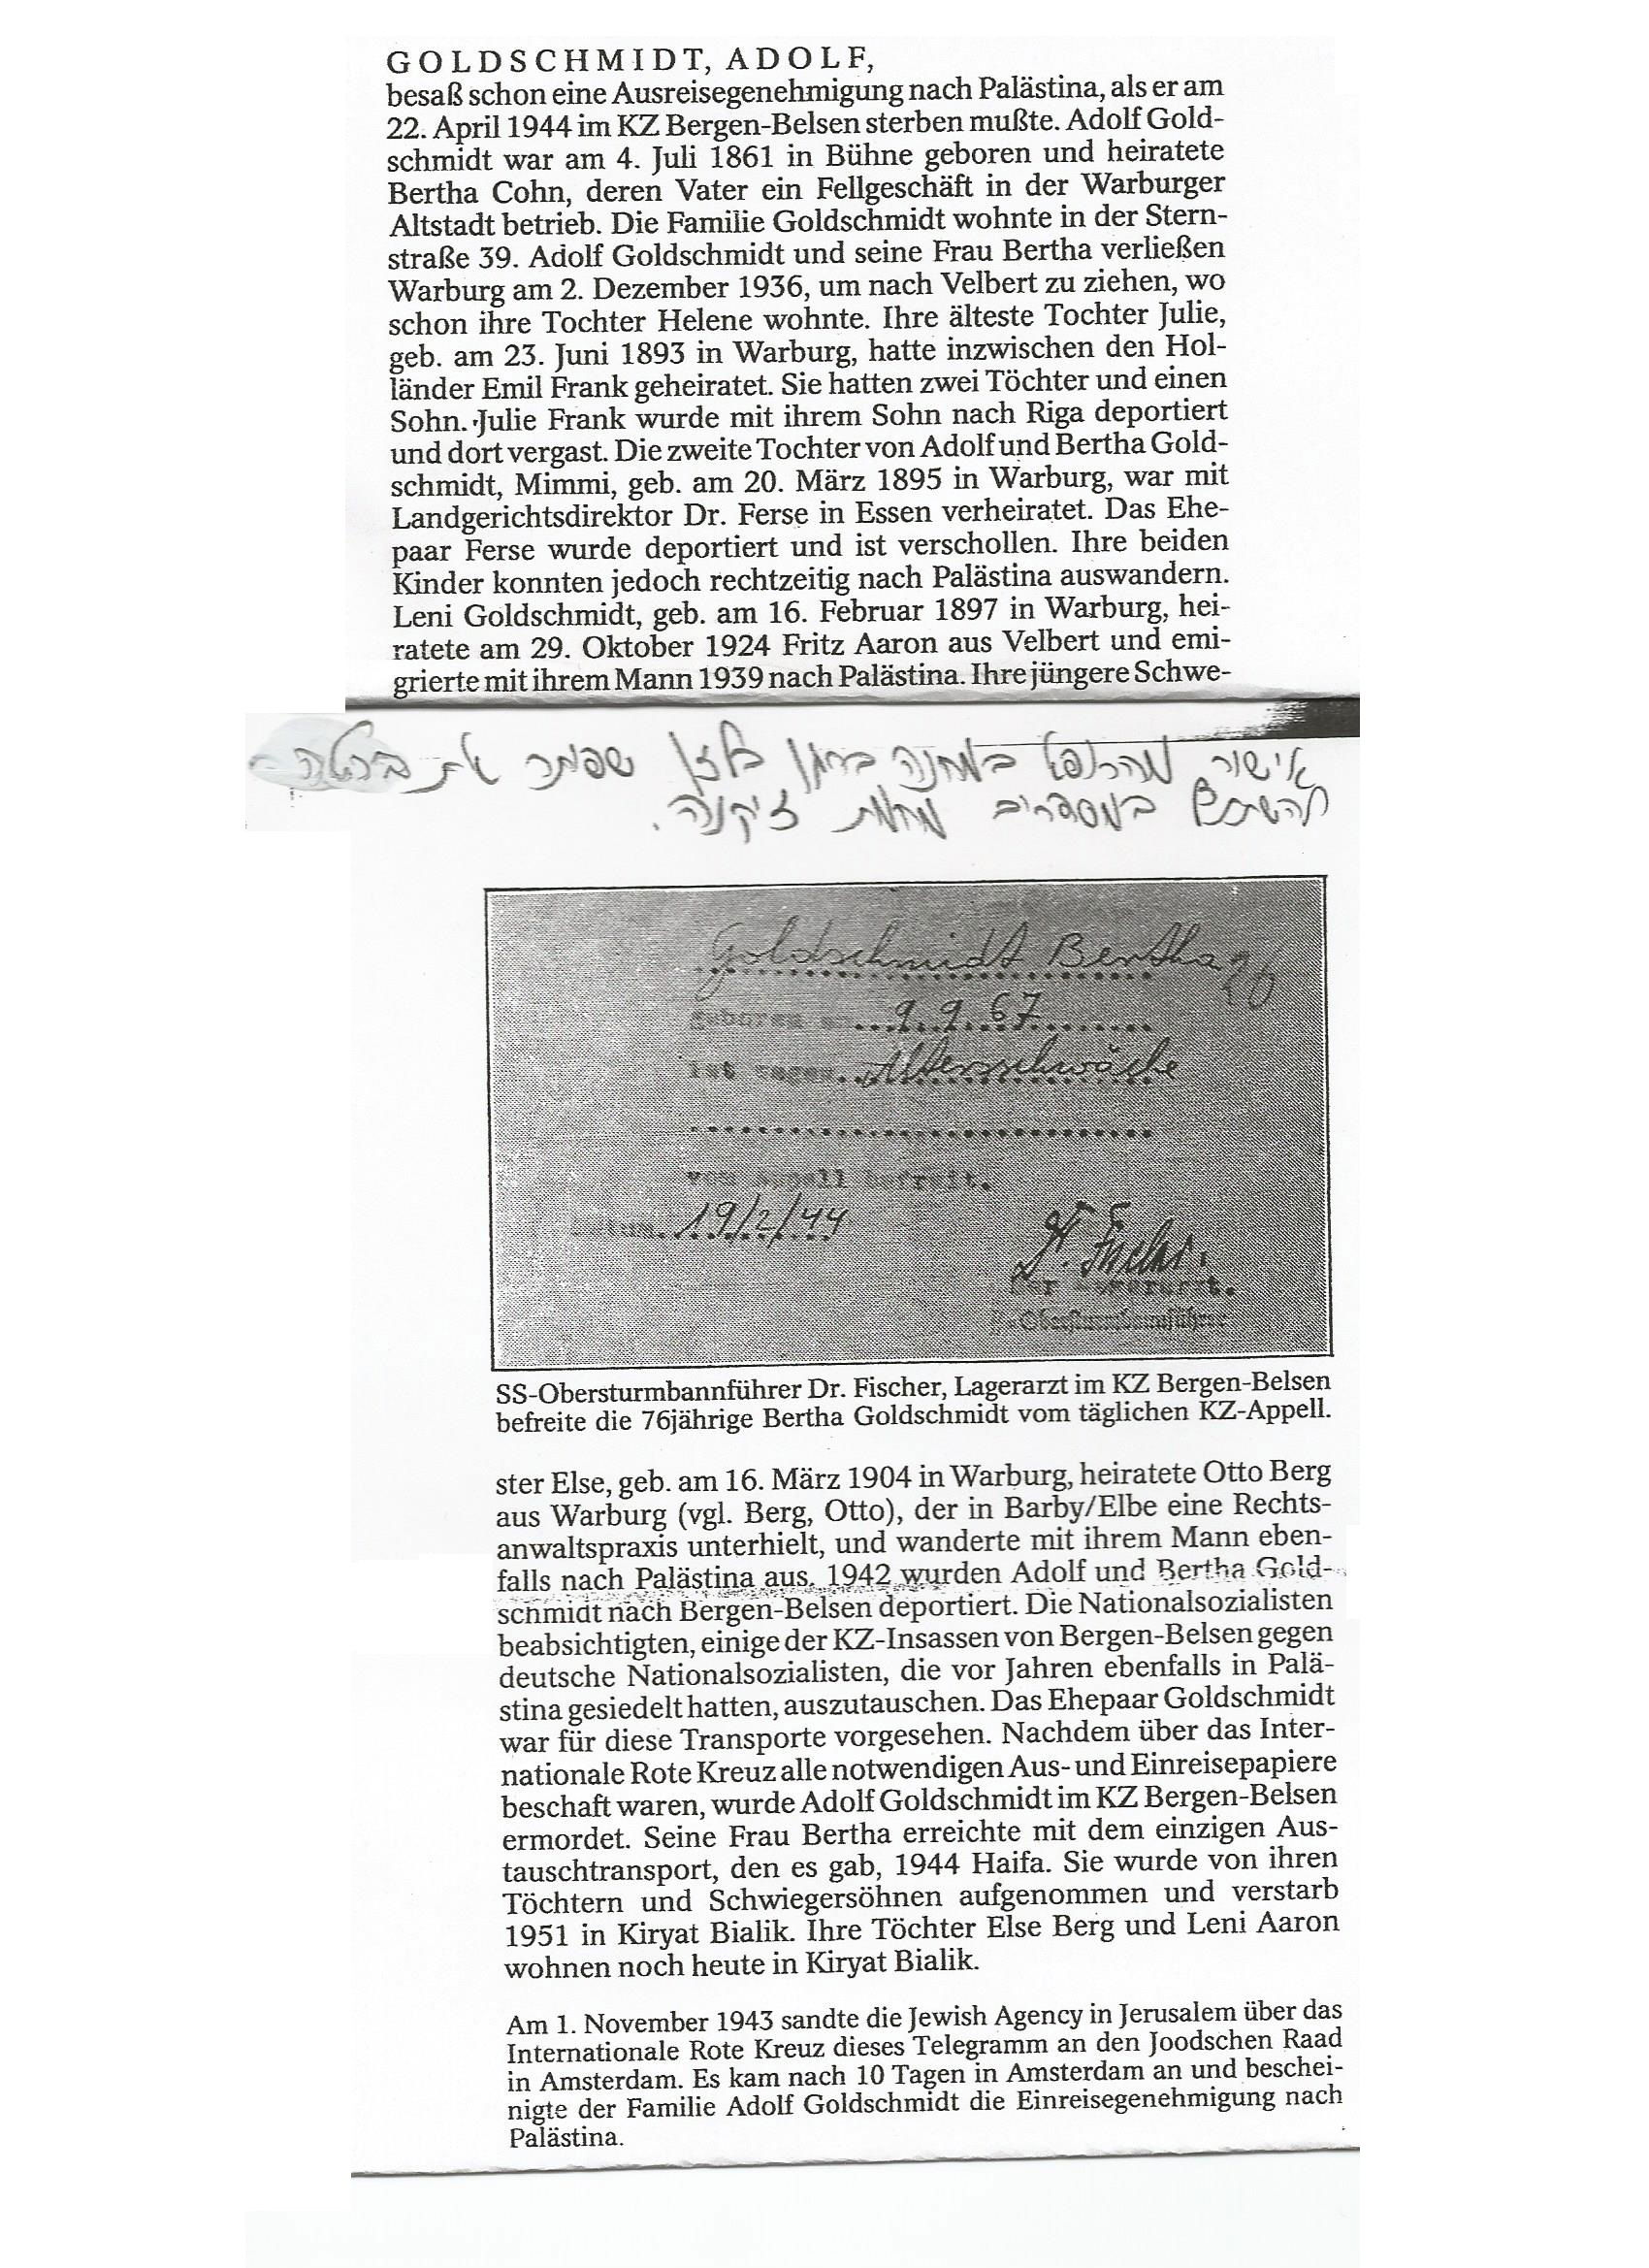 GOLDSCHMIDT, ADOLF,
besaß schon eine Ausreisegenehmigung nach Palästina, als er am
22. April 1944 im KZ Bergen-Belsen sterben mußte. Adolf Gold-
schmidt war am 4. Juli 1861 in Bühne geboren und heiratete
Bertha Cohn, deren Vater ein Fellgeschäft in der Warburger
Altstadt betrieb. Die Familie Goldschmidt wohnte in der Stern-
straße 39. Adolf Goldschmidt und seine Frau Bertha verließen
Warburg am 2. Dezember 1936, um nach Velbert zu ziehen, wo
schon ihre Tochter Helene wohnte. Ihre älteste Tochter Julie,
geb. am 23. Juni 1893 in Warburg, hatte inzwischen den Hol-
länder Emil Frank geheiratet. Sie hatten zwei Töchter und einen
Sohn. Julie Frank wurde mit ihrem Sohn nach Riga deportiert
und dort vergast. Die zweite Tochter von Adolf und Bertha Gold-
schmidt, Mimmi, geb. am 20. März 1895 in Warburg, war mit
Landgerichtsdirektor Dr. Ferse in Essen verheiratet. Das Ehe-
paar Ferse wurde deportiert und ist verschollen. Ihre beiden
Kinder konnten jedoch rechtzeitig nach Palästina auswandern.
Leni Goldschmidt, geb. am 16. Februar 1897 in Warburg, hei-
ratete am 29. Oktober 1924 Fritz Aaron aus Velbert und emi-
grierte mit ihrem Mann 1939 nach Palästina. Ihre jüngere Schwe-
אישור מהרופא במחנה ברגן בלזן שפוטר את ברטה
להשתתף במסדרים מחמת זיקנה.
Goldschmidt Bertha
geboren am 9.9.67
ist wegen Altersschwäche
vom Appell befreit.
Datum 19/2/44
Der Lagerarzt.
SS-Obersturmbannführer
SS-Obersturmbannführer Dr. Fischer, Lagerarzt im KZ Bergen-Belsen
befreite die 76jährige Bertha Goldschmidt vom täglichen KZ-Appell.
ster Else, geb. am 16. März 1904 in Warburg, heiratete Otto Berg
aus Warburg (vgl. Berg, Otto), der in Barby/Elbe eine Rechts-
anwaltspraxis unterhielt, und wanderte mit ihrem Mann eben-
falls nach Palästina aus. 1942 wurden Adolf und Bertha Gold-
schmidt nach Bergen-Belsen deportiert. Die Nationalsozialisten
beabsichtigten, einige der KZ-Insassen von Bergen-Belsen gegen
deutsche Nationalsozialisten, die vor Jahren ebenfalls in Palä-
stina gesiedelt hatten, auszutauschen. Das Ehepaar Goldschmidt
war für diese Transporte vorgesehen. Nachdem über das Inter-
nationale Rote Kreuz alle notwendigen Aus- und Einreisepapiere
beschaft waren, wurde Adolf Goldschmidt im KZ Bergen-Belsen
ermordet. Seine Frau Bertha erreichte mit dem einzigen Aus-
tauschtransport, den es gab, 1944 Haifa. Sie wurde von ihren
Töchtern und Schwiegersöhnen aufgenommen und verstarb
1951 in Kiryat Bialik. Ihre Töchter Else Berg und Leni Aaron
wohnen noch heute in Kiryat Bialik.
Am 1. November 1943 sandte die Jewish Agency in Jerusalem über das
Internationale Rote Kreuz dieses Telegramm an den Joodschen Raad
in Amsterdam. Es kam nach 10 Tagen in Amsterdam an und beschei-
nigte der Familie Adolf Goldschmidt die Einreisegenehmigung nach
Palästina.